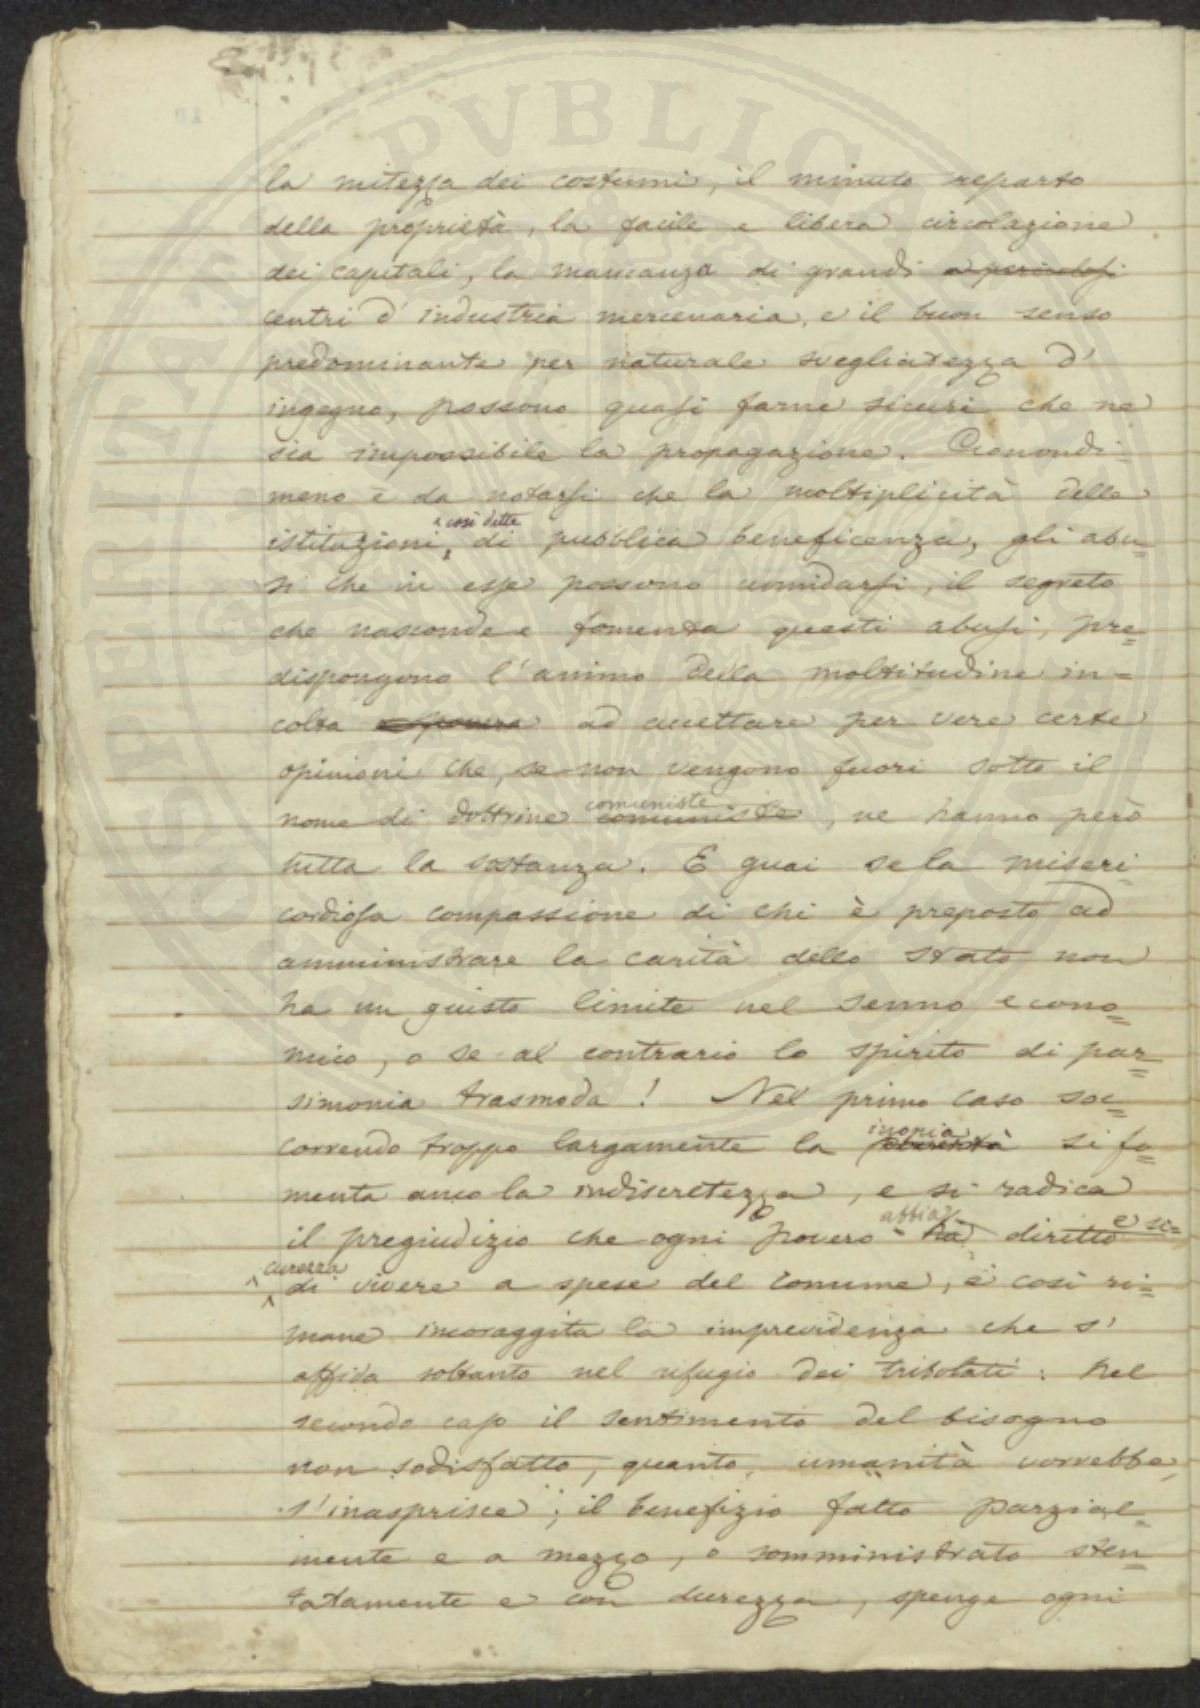 la mitezza dei costumi, il minuto reparto
della proprietà, la facile e libera circolazione
dei capitali, la mancanza di grandi e pericolosi
centri d' industria mercenaria, e il buon senso
predominante per naturale svegliatezza d'
ingegno, possono quasi farne sicuri che ne
sia impossibile la propagazione. Cionondi-
meno è da notarsi che la moltiplicità delle
istituzioni, così dette di pubblica beneficenza, gli abu=
si che in esse possono annidarsi, il segreto
che nasconde e fomenta questi abusi, pre=
dispongono l'animo della moltitudine in=
colta e povera ad accettare per vere certe
opinioni che, se non vengono fuori sotto il
nome di dottrine comuniste comuniste, ne hanno però
tutta la sostanza. E guai se la miseri-
cordiosa compassione di chi è preposto ad
amministrare la carità dello stato non
ha un giusto limite nel senno econo=
mico, o se al contrario lo spirito di par=
simonia trasmoda! Nel primo caso soc=
correndo troppo largamente la inopia povertà si fo=
menta anco la indiscretezza, e si radica
il pregiudizio che ogni povero abbia ha diritto e si=
curezza di vivere a spese del comune, e così ri=
mane incoraggita la imprevidenza che s'
affida soltanto nel rifugio dei tribolati: Nel
secondo caso il sentimento del bisogno
non sodisfatto, quanto umanità vorrebbe,
s'inasprisce; il benefizio fatto parzial-
mente e a mezzo, o somministrato sten=
tatamente e con durezza, spenge ogni